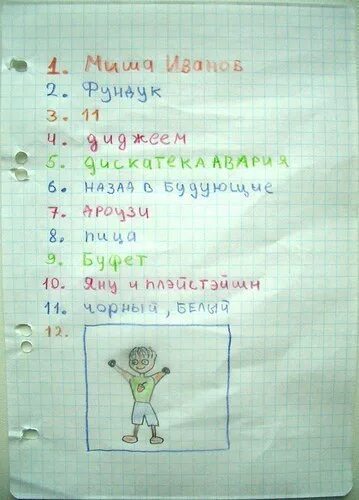 1. Миша Иванов
2. Фундук
3. 11
4. диджеем
5. дискатека АВАРИЯ
6. назад в будующие
7. дроузи
8. пица
9. Буфет
10. Яну и плэйстэйшн
11. чорный, БЕЛЫЙ
12.